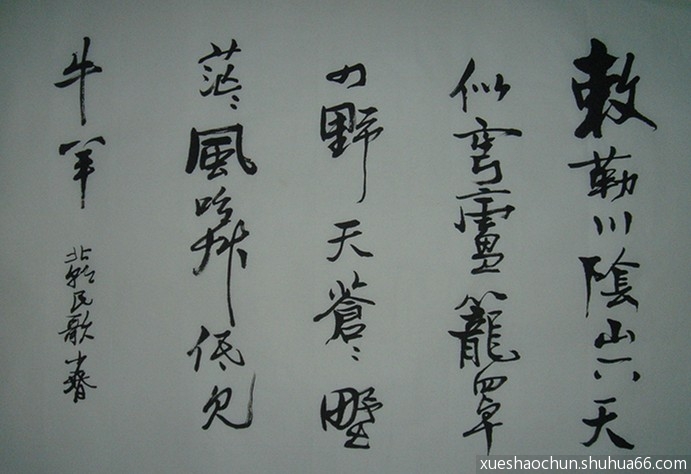 敕勒川陰山下天
似穹廬籠罩
四野天蒼〻野
茫〻風吹草低見
牛羊
北朝民歌少春
xueshaochun.shuhua66.com